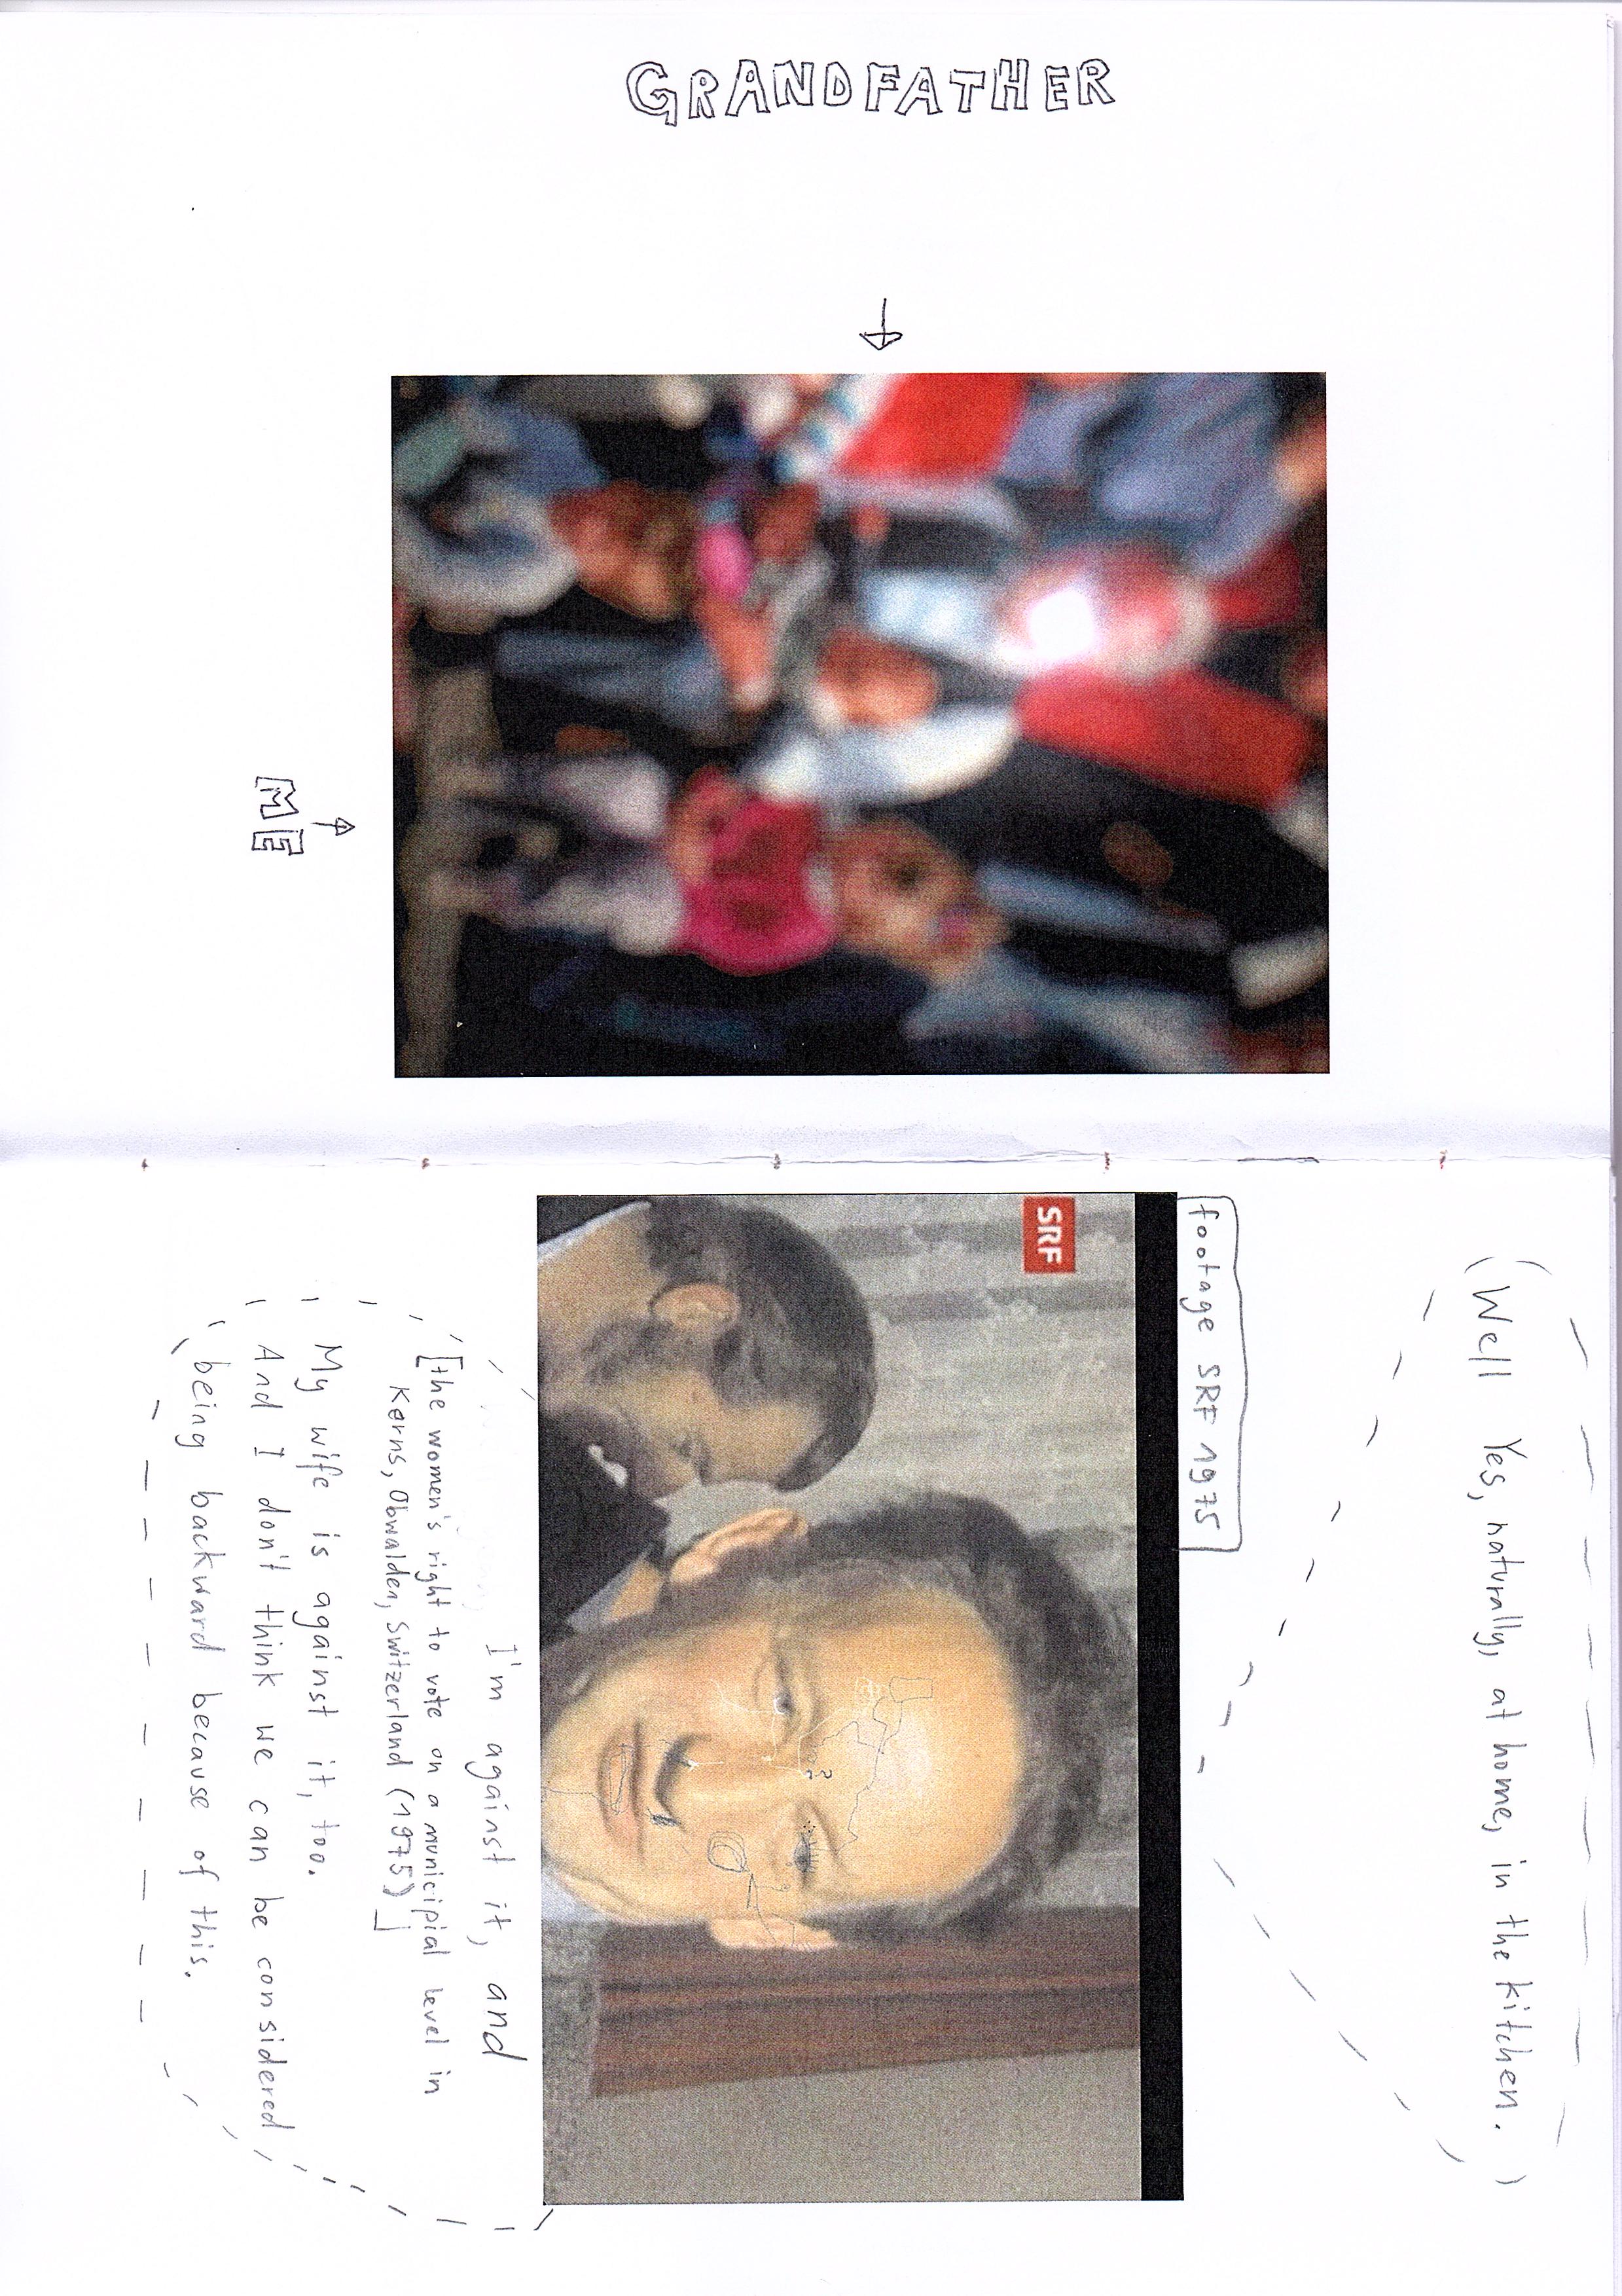 GRANDFATHER
ME
Well Yes, naturally, at home, in the kitchen.
footage SRF 1975
SRF
?
I'm against it, and
[the women's right to vote on a municipial level in
Kerns, Obwalden, Switzerland (1975)]
My wife is against it, too.
And I don't think we can be considered
being backward because of this.